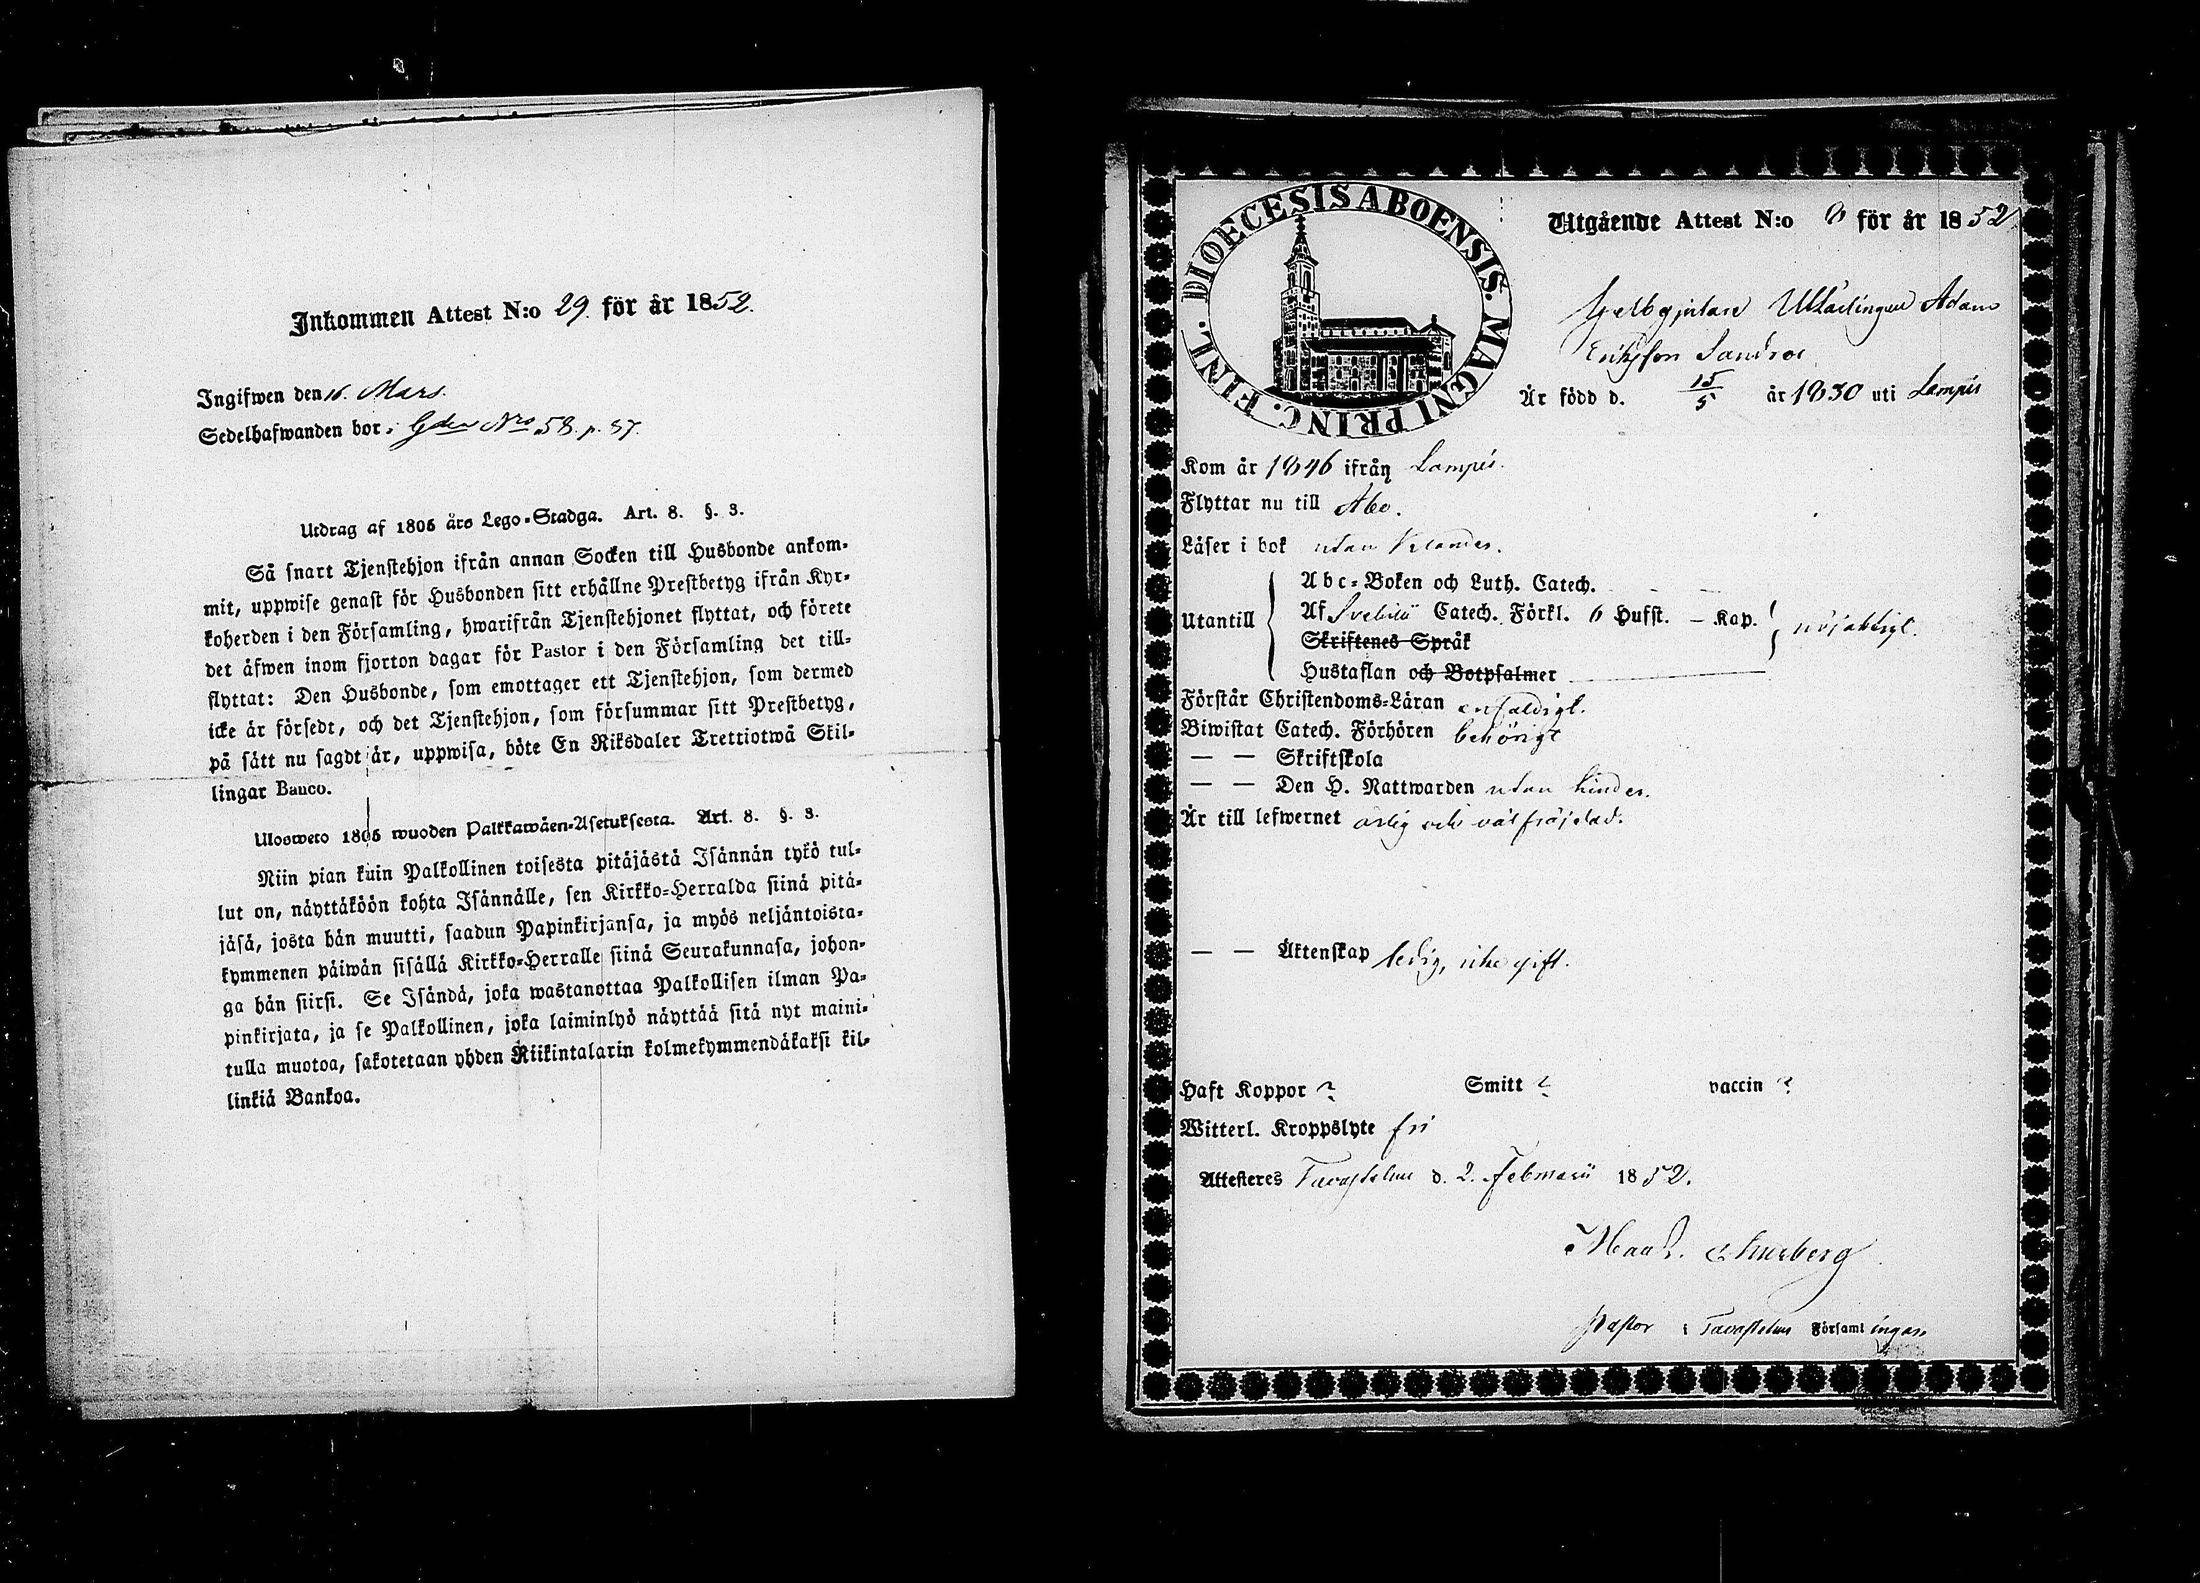 Inkommen Attest N:o 29. för år 1852.
Ingifwen den 16. Mars.
Sedelhafwanden bor i Gden Nro 58. p. 87.
Utdrag af 1805 års Lego-Stadga. Art. 8. §. 3.
Så snart Tjenstehjon ifrån annan Socken till Husbonde ankom-
mit, uppwise genast för Husbonden sitt erhållne Prestbetyg ifrån Kyr-
koherden i den Församling, hwarifrån Tjenstehjonet flyttat, och förete
det äfwen inom fjorton dagar för Pastor i den Församling det till-
flyttat: Den Husbonde, som emottager ett Tjenstehjon, som dermed
icke är försedt, och det Tjenstehjon, som försummar sitt Prestbetyg,
på sätt nu sagdt är, uppwisa, böte En Riksdaler Trettiotwå Skil-
lingar Banco.
Ulosweto 1805 wuoden Palkkawäen-Asetuksesta. Art. 8. §. 3.
Niin pian kuin Palkollinen toisesta pitäjästä Isännän tykö tul-
lut on, näyttäköön kohta Isännälle, sen Kirkko-Herralda siinä pitä-
jäsä, josta hän muutti, saadun Papinkirjansa, ja myös neljäntoista-
kymmenen päiwän sisällä Kirkko-Herralle siinä Seurakunnasa, johon-
ga hän siirsi. Se Isändä, joka wastanottaa Palkollisen ilman Pa-
pinkirjata, ja se Palkollinen, joka laiminlyö näyttää sitä nyt maini-
tulla muotoa, sakotetaan yhden Riikintalarin kolmekymmendäkaksi kil-
linkiä Bankoa.
DIOECESIS ABOENSIS. MAGNI PRINC. FINL.
Utgående Attest N:o 8 för år 1852
Gelbgjutare Utlärlingen Adam
Eriksson Sandroos
Är född d. 15/5 år 1830 uti Lampis
Kom år 1846 ifrån Lampis.
Flyttar nu till Åbo.
Läser i bok utan klander.
Abc-Boken och Luth. Catech. — —
Utantill Af Svebilii Catech. Förkl. 6 Hufst. — Kap. nöjaktigt.
Skriftenes Språk
Hustaflan och Botpsalmer
Förstår Christendoms-Läran enfaldigt.
Biwistat Catech. Förhören behörigt
— — Skriftskola
— — Den H. Nattwarden utan hinder.
Är till lefwernet ärlig och välfräjdad.
— — Äktenskap ledig, icke gift.
Haft Koppor ? Smitt ? vaccin ?
Witterl. Kroppslyte fri
Attesteres Tavastehus d. 2. Februarii 1852.
Thurberg
Pastor i Tavastehus Församlingar.